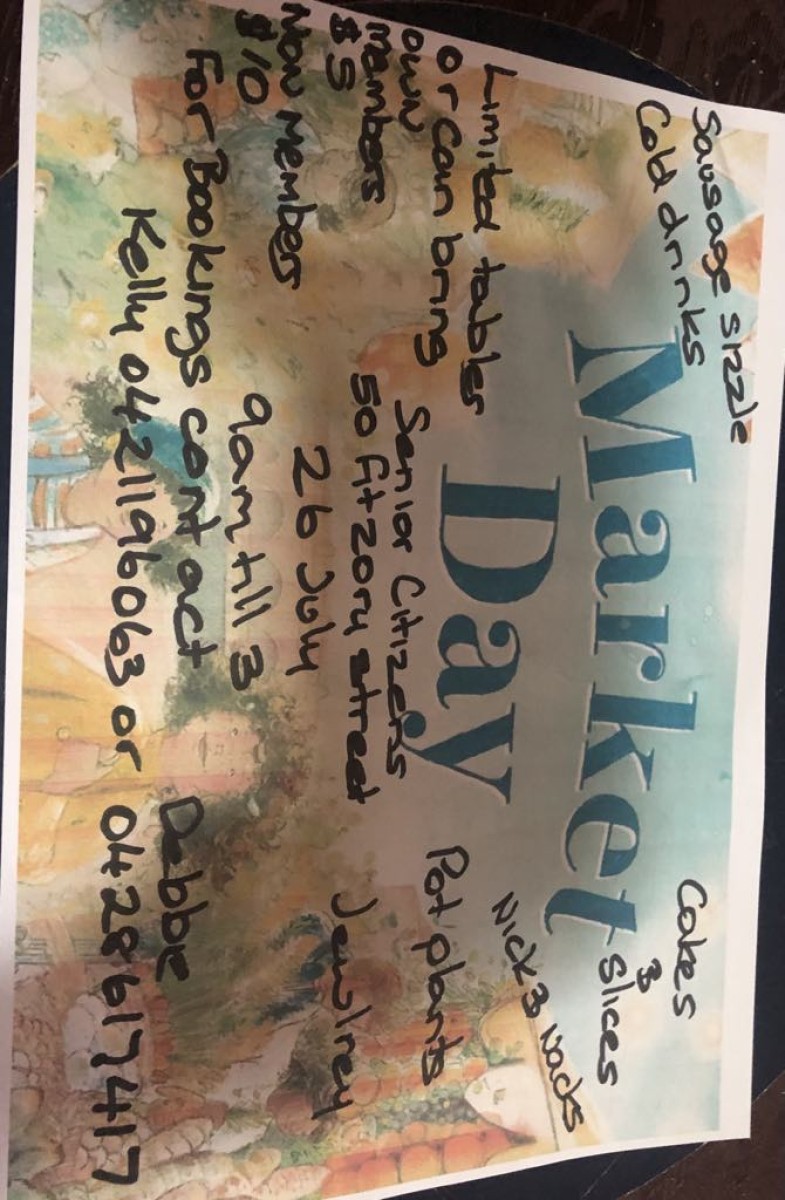 Sausage sizzle
Cold drinks
Cakes
&
slices
Market
Day
Nick & Nacks
Pot plants
Jewlrey
Limited tables
or can bring
own
members
$5
Non members
$10
Senior Citizens
50 Fitzory street
26 July
9am till 3
For Bookings contact
Kelly 0421196063 or
Debbie
0428617417